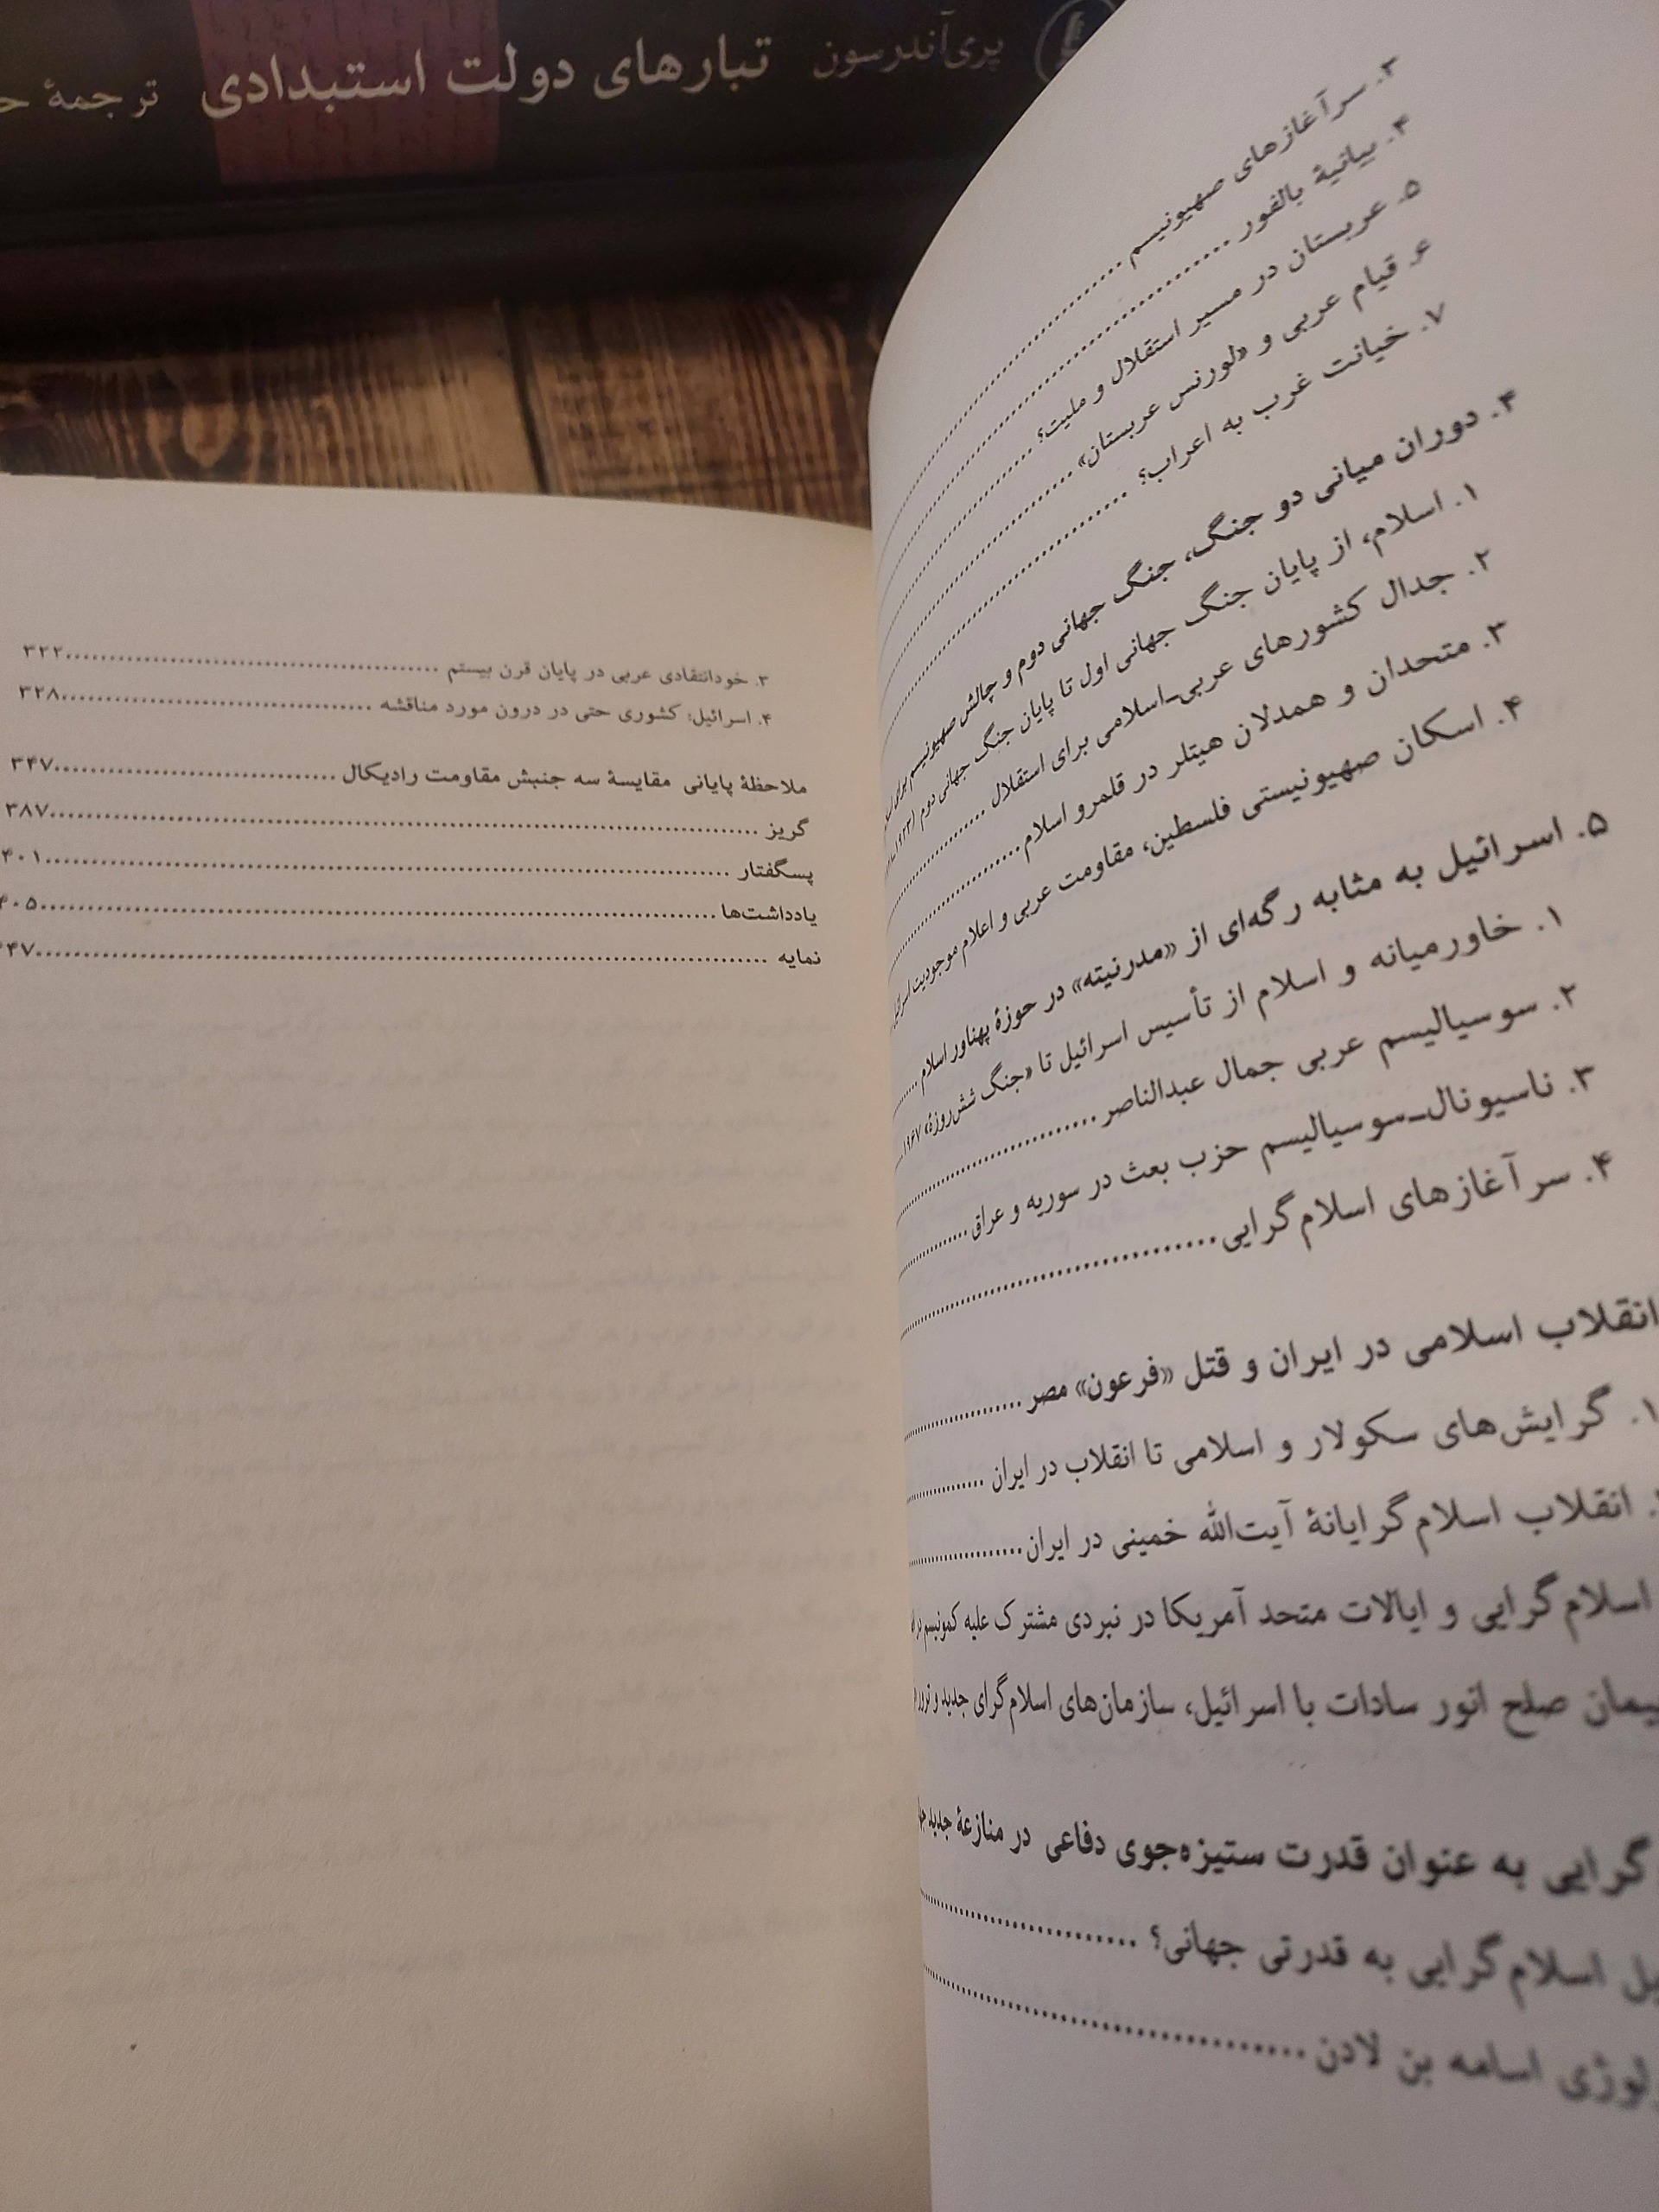 پری آندرسون تبارهای دولت استبدادی ترجمهٔ
۳. سرآغازهای صهیونیسم
۴. بیانیهٔ بالفور
۵. عربستان در مسیر استقلال و ملیت؟
۶. قیام عربی و «لورنس عربستان»
۷. خیانت غرب به اعراب؟
۴. دوران میانی دو جنگ، جنگ جهانی دوم و چالش صهیونیسم برای
۱. اسلام، از پایان جنگ جهانی اول تا پایان جنگ جهانی دوم
۲. جدال کشورهای عربی-اسلامی برای استقلال
۳. متحدان و همدلان هیتلر در قلمرو اسلام
۴. اسکان صهیونیستی فلسطین، مقاومت عربی و اعلام موجودیت اسرائیل
۵. اسرائیل به مثابه رگه‌ای از «مدرنیته» در حوزهٔ پهناور اسلام
۱. خاورمیانه و اسلام از تأسیس اسرائیل تا «جنگ شش‌روزهٔ» ۱۹۶۷
۲. سوسیالیسم عربی جمال عبدالناصر
۳. ناسیونال-سوسیالیسم حزب بعث در سوریه و عراق
۴. سرآغازهای اسلام‌گرایی
انقلاب اسلامی در ایران و قتل «فرعون» مصر
۱. گرایش‌های سکولار و اسلامی تا انقلاب در ایران
انقلاب اسلام‌گرایانهٔ آیت‌الله خمینی در ایران
اسلام‌گرایی و ایالات متحد آمریکا در نبردی مشترک علیه کمونیسم در
صلح انور سادات با اسرائیل، سازمان‌های اسلام‌گرای جدید و ترور
گرایی به عنوان قدرت ستیزه‌جوی دفاعی در منازعهٔ جدید
اسلام‌گرایی به قدرتی جهانی؟
اسامه بن لادن
۳. خودانتقادی عربی در پایان قرن بیستم ۳۲۲
۴. اسرائیل: کشوری حتی در درون مورد مناقشه ۳۲۸
ملاحظهٔ پایانی مقایسهٔ سه جنبش مقاومت رادیکال ۳۴۷
گریز ۳۸۷
پسگفتار ۴۰۱
یادداشت‌ها ۴۰۵
نمایه